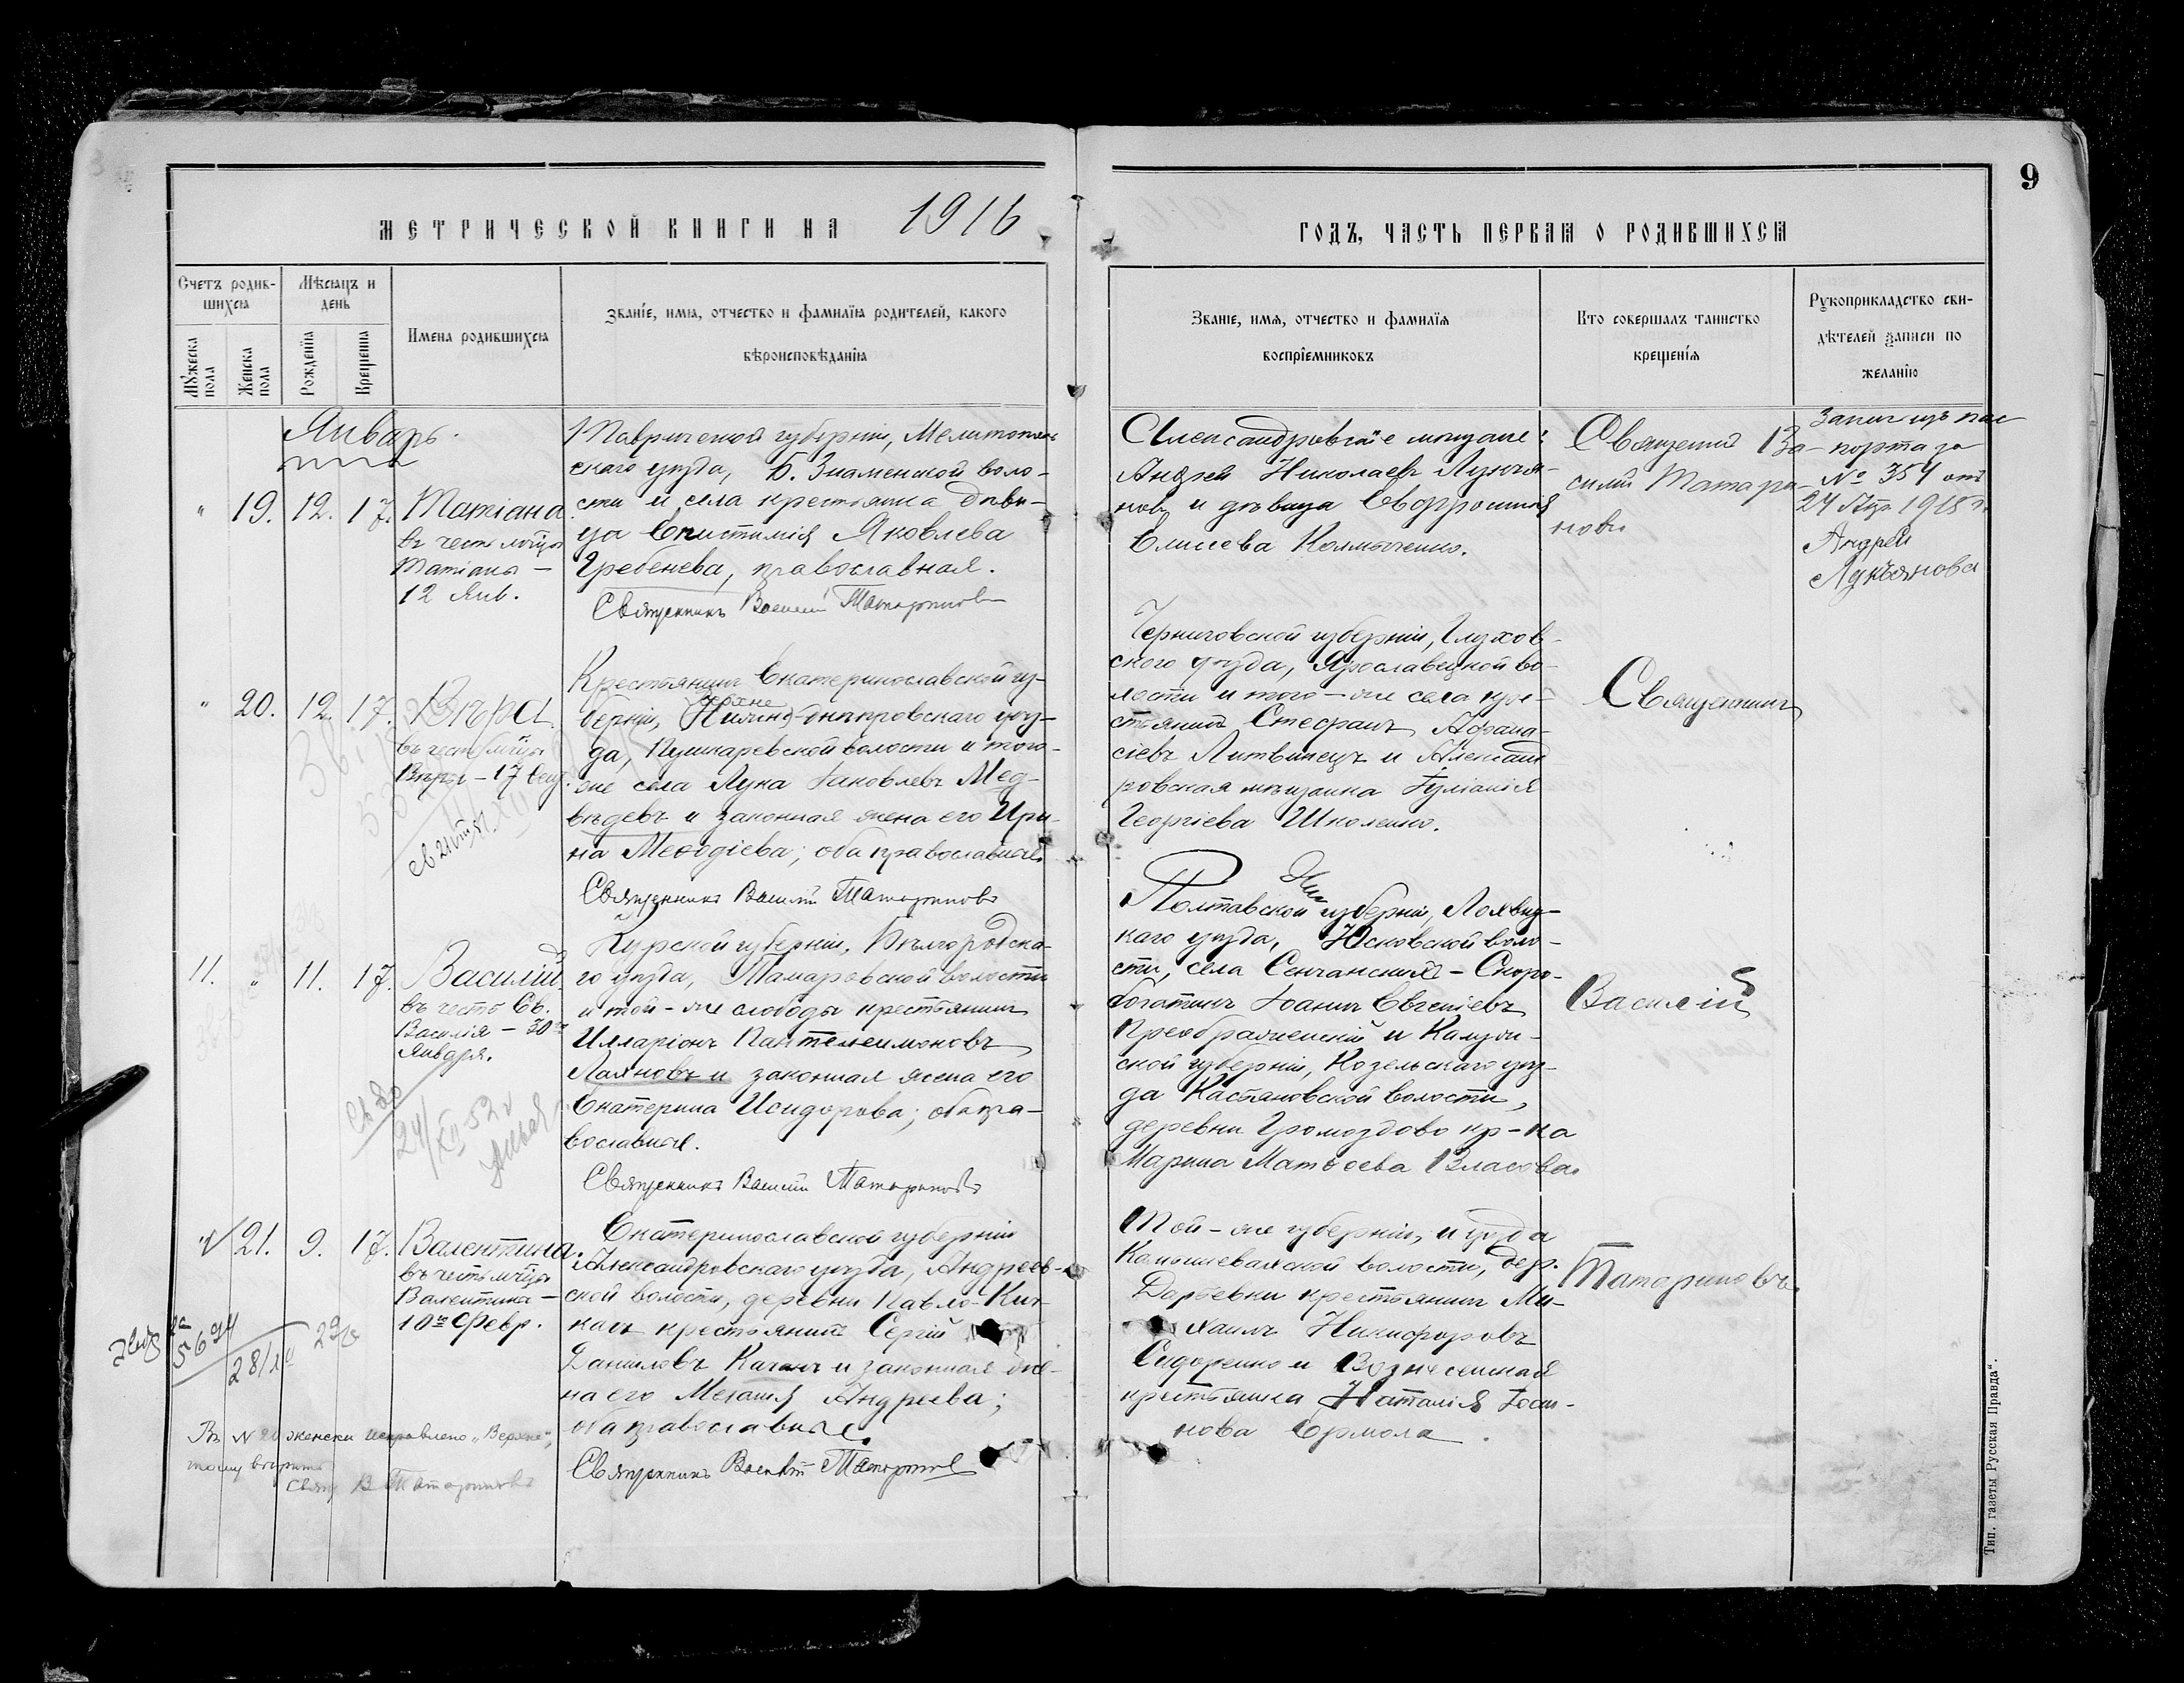 9
МЕТРИЧЕСКОЙ КНИГИ НА 1916
ГОДЪ, ЧАСТЬ ПЕРВАЯ О РОДИВШИХСЯ
Счетъ родив-
шихся
Мужеска пола
Женска пола
Мѣсяцъ и
день
Рожденія
Крещенія
Имена родившихся
Званіе, имя, отчество и фамилія родителей, какого
вѣроисповѣданія
Званіе, имя, отчество и фамилія
воспріемниковъ
Кто совершалъ таинство
крещенія
Рукоприкладство сви-
дѣтелей записи по
желанію
Январь.
" 19. 12. 17.
Татіана
въ честь мч̃цы
Татіаны —
12 Янв.
Таврической губерніи, Мелитополь
скаго уѣзда, Б. Знаменской воло-
сти и села крестьянка дѣви-
ца Епистимія Яковлева
Гребенева, православная.
Священникъ Василій Татариновъ
Александровскіе мѣщане:
Андрей Николаевъ Лукья-
новъ и дѣвица Евфросинія
Елисеева Колмыченко.
Священникъ Ва-
силій Татари-
новъ
Запис. изъ пас
порта за
№ 354 отъ
24 Апр. 1915 г.
Андрей
Лукьяновъ
" 20. 12. 17.
Вѣра
въ честь мч̃цы
Вѣры — 17 Сент.
Крестьянинъ Екатеринославской гу-
берніи, Нижне-днѣпровскаго уѣз-
верхне
да, Пушкаревской волости и того-
же села Лука Іаковлевъ Мед-
вѣдевъ и законная жена его Ири-
на Меѳодіева; оба православные.
Священникъ Василій Татариновъ
Черниговской губерніи, Глухов-
ского уѣзда, Ярославецкой во-
лости и того-же села кре-
стьянинъ Стефанъ Афана-
сіевъ Литвинецъ и Александ
ровская мѣщанка Іуліанія
Георгіева Школенко.
Священникъ
11. " 11. 17.
Василій
въ честь Св.
Василія — 30го
Января.
Св-во
24/XII 52 г
Курской губерніи, Бѣлгородска-
го уѣзда, Тамаровской волости
и той-же слободы крестьянинъ
Илларіонъ Пантелеимоновъ
Лаяновъ и законная жена его
Екатерина Исидорова; оба пра-
вославные.
Священникъ Василій Татариновъ
Полтавской губерніи, Лохвиц-
каго уѣзда, Юсковской воло-
сти, села Сенчанскихъ-Скоро-
богатинъ Іоаннъ Евгеніевъ
Преображенскій и Калуж-
ской губерніи, Козельскаго уѣз-
да Касьяновской волости,
деревни Громоздово кр-ка
Марина Матѳеева Власова.
Василій
21. 9. 17.
Валентина.
въ честь мч̃цы
Валентины —
10го Февр.
5694
28/XII
Екатеринославской губерніи
Александровскаго уѣзда, Андреев-
ской волости, деревни Павло-Кич-
касъ крестьянинъ Сергій
Даниловъ Качанъ и законная же-
на его Меланія Андреева;
оба православные.
Священникъ Василій Татариновъ
Той-же губерніи, и уѣзда
Камышевахской волости, дер.
Дарьевки крестьянинъ Ми-
хаилъ Никифоровъ
Сидоренко и Вознесенская
крестьянка Наталія Іоан-
нова Ермола.
Татариновъ.
Въ № 20 женски исправлено „Верхне",
тому вѣрить
Свящ В Татариновъ
Тип. газеты Русская Правда".